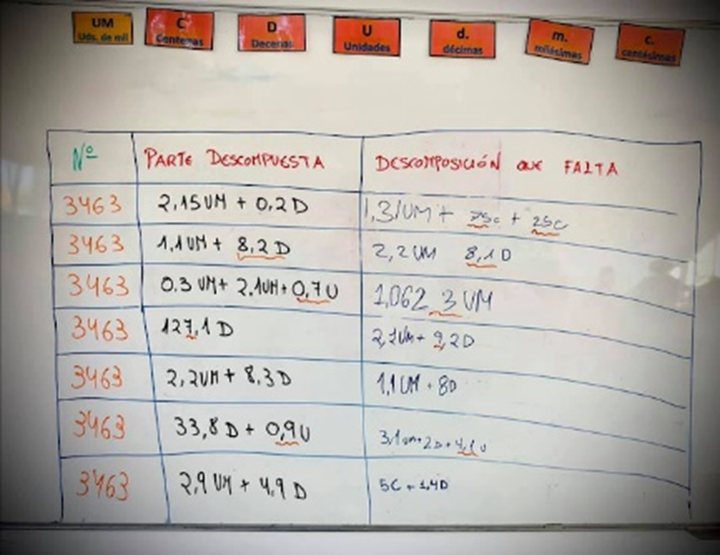 UM C D U d. m. c.
Uds. de mil Centenas Decenas Unidades décimas milésimas centésimas
Nº PARTE DESCOMPUESTA DESCOMPOSICIÓN QUE FALTA
3463 2,15 UM + 0,2 D 1,31 UM + + 25c
3463 1,1 UM + 8,2 D 2,2 UM 8,1 D
3463 0.3 UM + 2.1UM + 0,7 U 1,062 3 UM
3463 127,1 D 2,1UM + 9,2D
3463 2,2UM + 8,3 D 1,1 UM + 8D
3463 33,8 D + 0,9 U 3,1 UM + 2D + 4,1 U
3463 2,9 UM + 4,9 D 5C + 1,4D